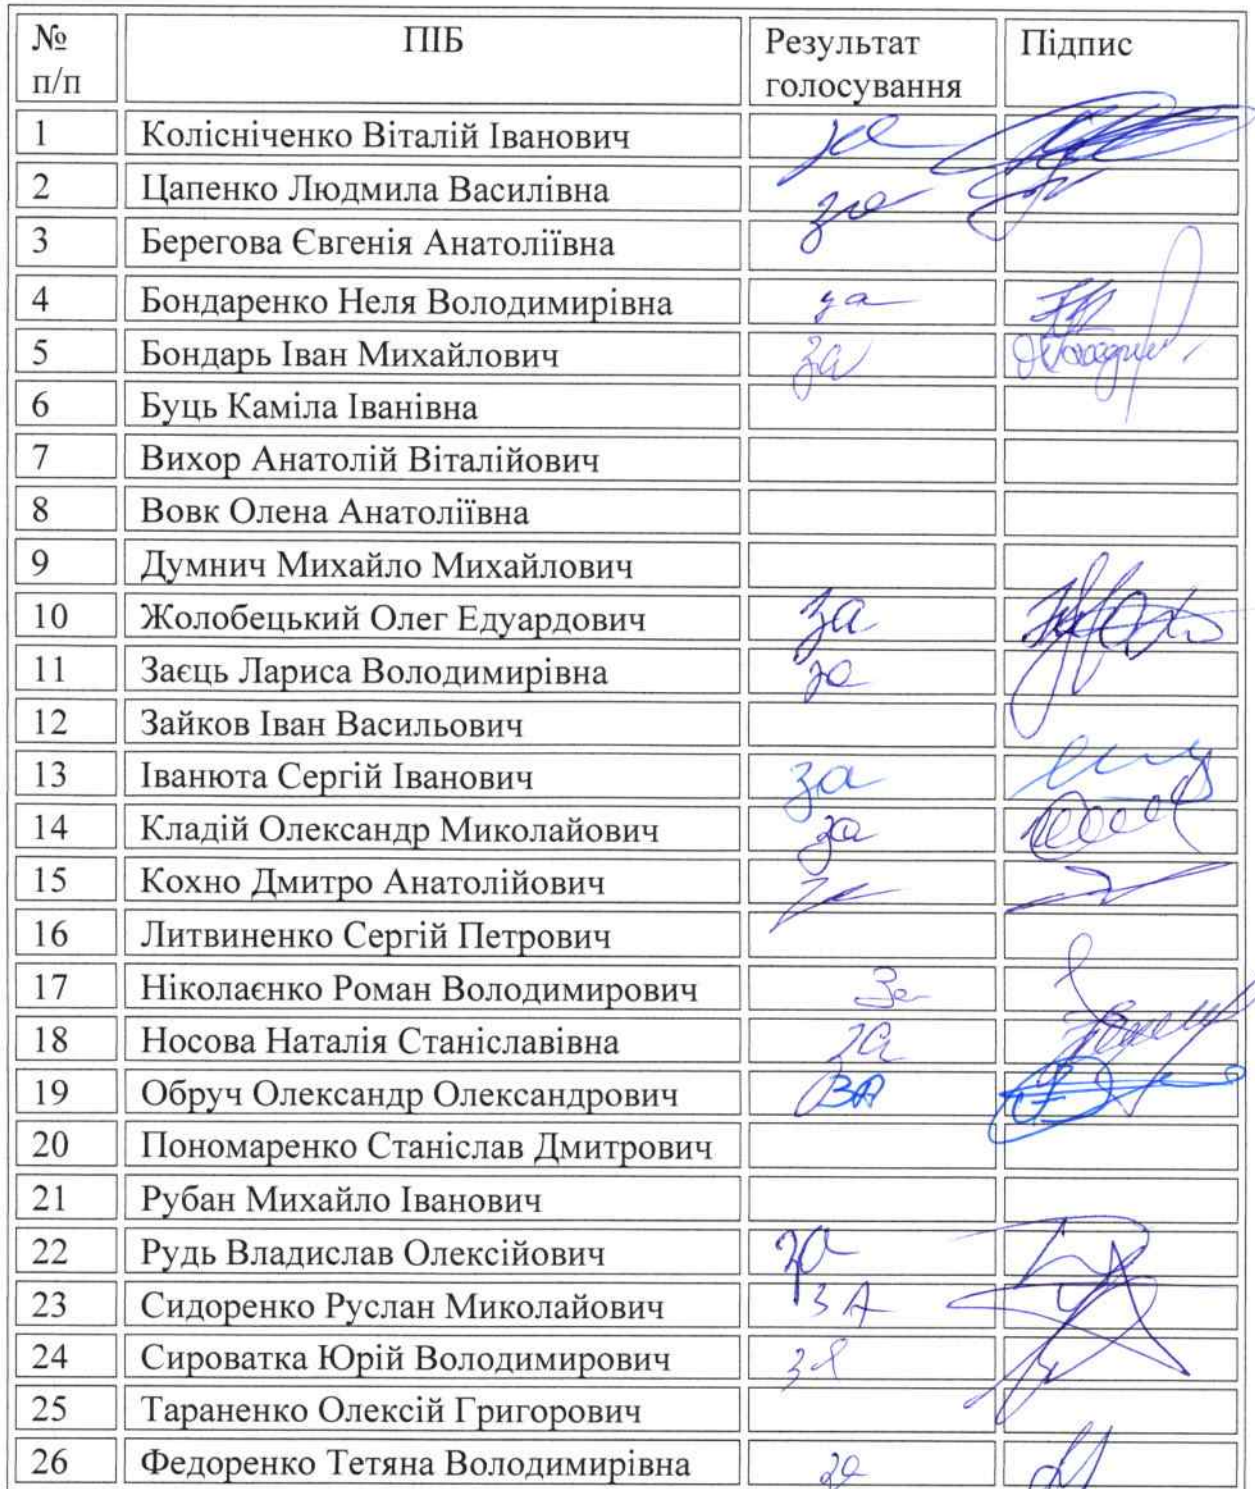 № п/п ПІБ Результат голосування Підпис
1 Колісніченко Віталій Іванович за
2 Цапенко Людмила Василівна за
3 Берегова Євгенія Анатоліївна
4 Бондаренко Неля Володимирівна за
5 Бондарь Іван Михайлович за
6 Буць Каміла Іванівна
7 Вихор Анатолій Віталійович
8 Вовк Олена Анатоліївна
9 Думнич Михайло Михайлович
10 Жолобецький Олег Едуардович за
11 Заєць Лариса Володимирівна за
12 Зайков Іван Васильович
13 Іванюта Сергій Іванович за
14 Кладій Олександр Миколайович за
15 Кохно Дмитро Анатолійович
16 Литвиненко Сергій Петрович
17 Ніколаєнко Роман Володимирович За
18 Носова Наталія Станіславівна за
19 Обруч Олександр Олександрович ЗА
20 Пономаренко Станіслав Дмитрович
21 Рубан Михайло Іванович
22 Рудь Владислав Олексійович за
23 Сидоренко Руслан Миколайович ЗА
24 Сироватка Юрій Володимирович за
25 Тараненко Олексій Григорович
26 Федоренко Тетяна Володимирівна за